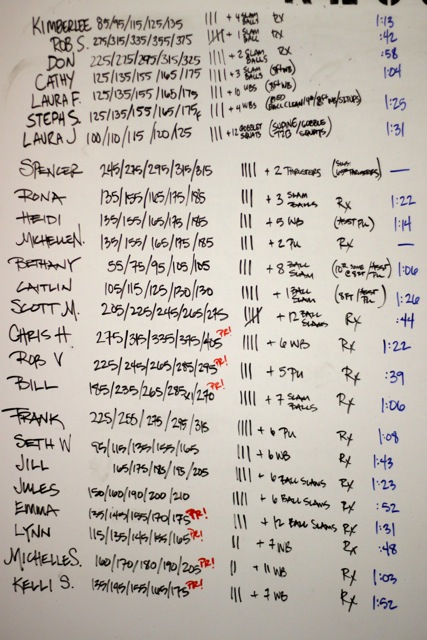 KIMBERLEE 85/95/115/125/135 |||| + 4 SLAM BALLS RX 1:13
ROB S. 275/315/335/355/375 + 1 SLAM BALL RX :42
DON 225/275/295/315/325 |||| + 2 SLAM BALLS RX :58
CATHY 125/135/155/165/175 |||| + 3 SLAM BALLS 1:04
LAURA F. 125/135/155/165/175 |||| + 10 WBS
STEPH S. 125/135/155/165/175 |||| + 4 WBS 1:25
LAURA J 100/110/115/120/125 |||| +12 GOBLET SQUATS 1:31
SPENCER 245/275/295/315/315 |||| + 2 THRUSTERS —
RONA 135/155/165/175/185 |||| + 3 SLAM BALLS RX 1:22
HEIDI 135/155/165/175/185 |||| + 5 WB (ASST PU) 1:14
MICHELLE N. 135/155/165/175/185 |||| + 2 PU RX —
BETHANY 55/75/95/105/105 |||| + 8 BALL SLAM 1:06
CAITLIN 105/115/125/130/130 |||| + 1 BALL SLAM 1:26
SCOTT M. 205/225/245/265/275 + 12 BALL SLAMS RX :44
CHRIS H. 275/315/335/375/405 PR! |||| + 6 WB RX 1:22
ROB V 225/245/265/285/295 PR! |||| + 5 PU RX :39
BILL 185/235/265/285x1/270 PR! |||| + 7 SLAM BALLS RX 1:06
FRANK 225/255/275/295/315 |||| + 6 PU RX 1:08
SETH W 95/115/135/155/165 |||| + 6 WB RX 1:43
JILL 165/175/185/185/205 |||| + 6 BALL SLAMS RX 1:23
JULES 150/160/190/200/210 |||| + 6 BALL SLAMS RX :52
EMMA 135/145/155/170/175 PR! ||| + 12 BALL SLAMS RX 1:31
LYNN 115/135/145/155/165 PR! || + 7 WB RX :48
MICHELLE S. 160/170/180/190/205 PR! || + 11 WB RX 1:03
KELLI S. 135/145/155/165/175 PR! ||| + 7 WB RX 1:52